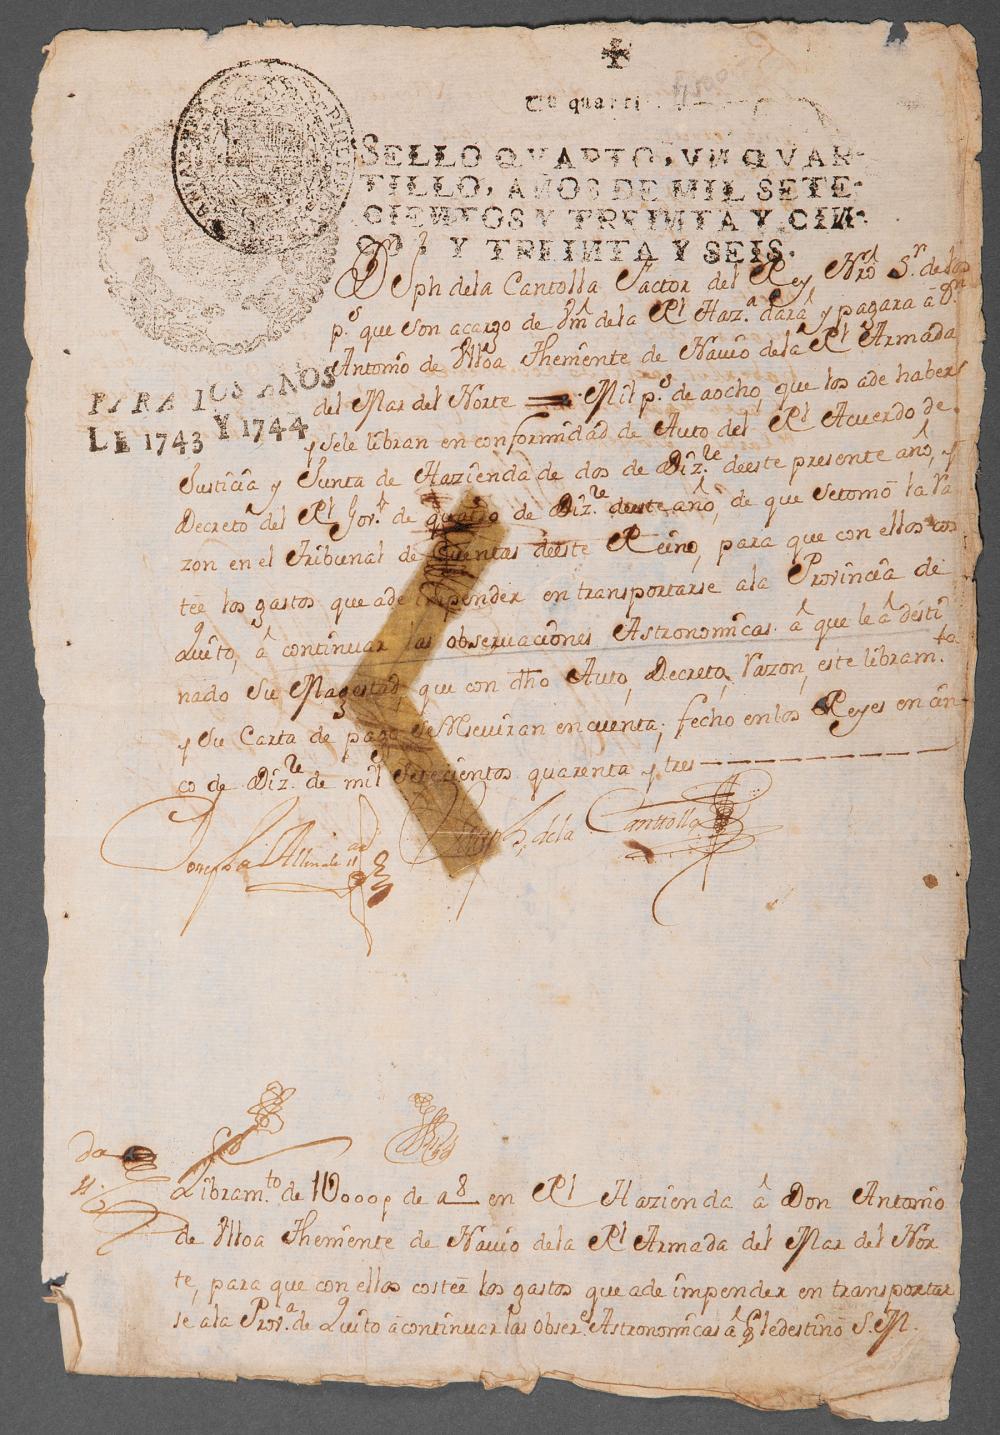 Un quarti
SELLO QVARTO, VN QVAR-
TILLO, AÑOS DE MIL SETE-
CIENTOS Y TREINTA Y CIN-
CO, Y TREINTA Y SEIS.
PARA LOS AÑOS
DE 1743 Y 1744
Dn Jph dela Cantolla Factor del Rey Nro Sr. de los
ps. que son acargo de Vm dela Rl Haza. dará y pagara â Dn
Antonio de Ulloa Theniente de Navio dela Rl Armada
del Mar del Norte Mil ps. de aocho, que los ade haber
y sele libran en conformidad de Auto del Rl Acuerdo de
Justicia y Junta de Hazienda de dos de Dizre. deeste presente año, y
Decreto del Rl Govo. de quatro de Dizre. deeste año, de que setomô la Ra
zon en el Tribunal de Cuentas deeste Reino, para que con ellos cos
teê los gastos que ade impender en transportarse ala Provincia de
Quito, â continuar las observaciones Astronomicas â que le â desti
nado Su Magestad, que con dho Auto, Decreto, Razon, este libramto.
y Su Carta de pago Se Reciviran en cuenta; fecho en los Reyes en cin
co de Dizre. de mil Setecientos quarenta y tres
Joseph dela Canttolla
Libramto. de 1U000p de a8 en Rl Hazienda â Don Antonio
de Ulloa Theniente de Navio dela Rl Armada del Mar del Nor
te, para que con ellos costeê los gastos que ade impender en transportar
se ala Prova. de Quito âcontinuar las obsere. Astronomicas â q ledestinô S. M.